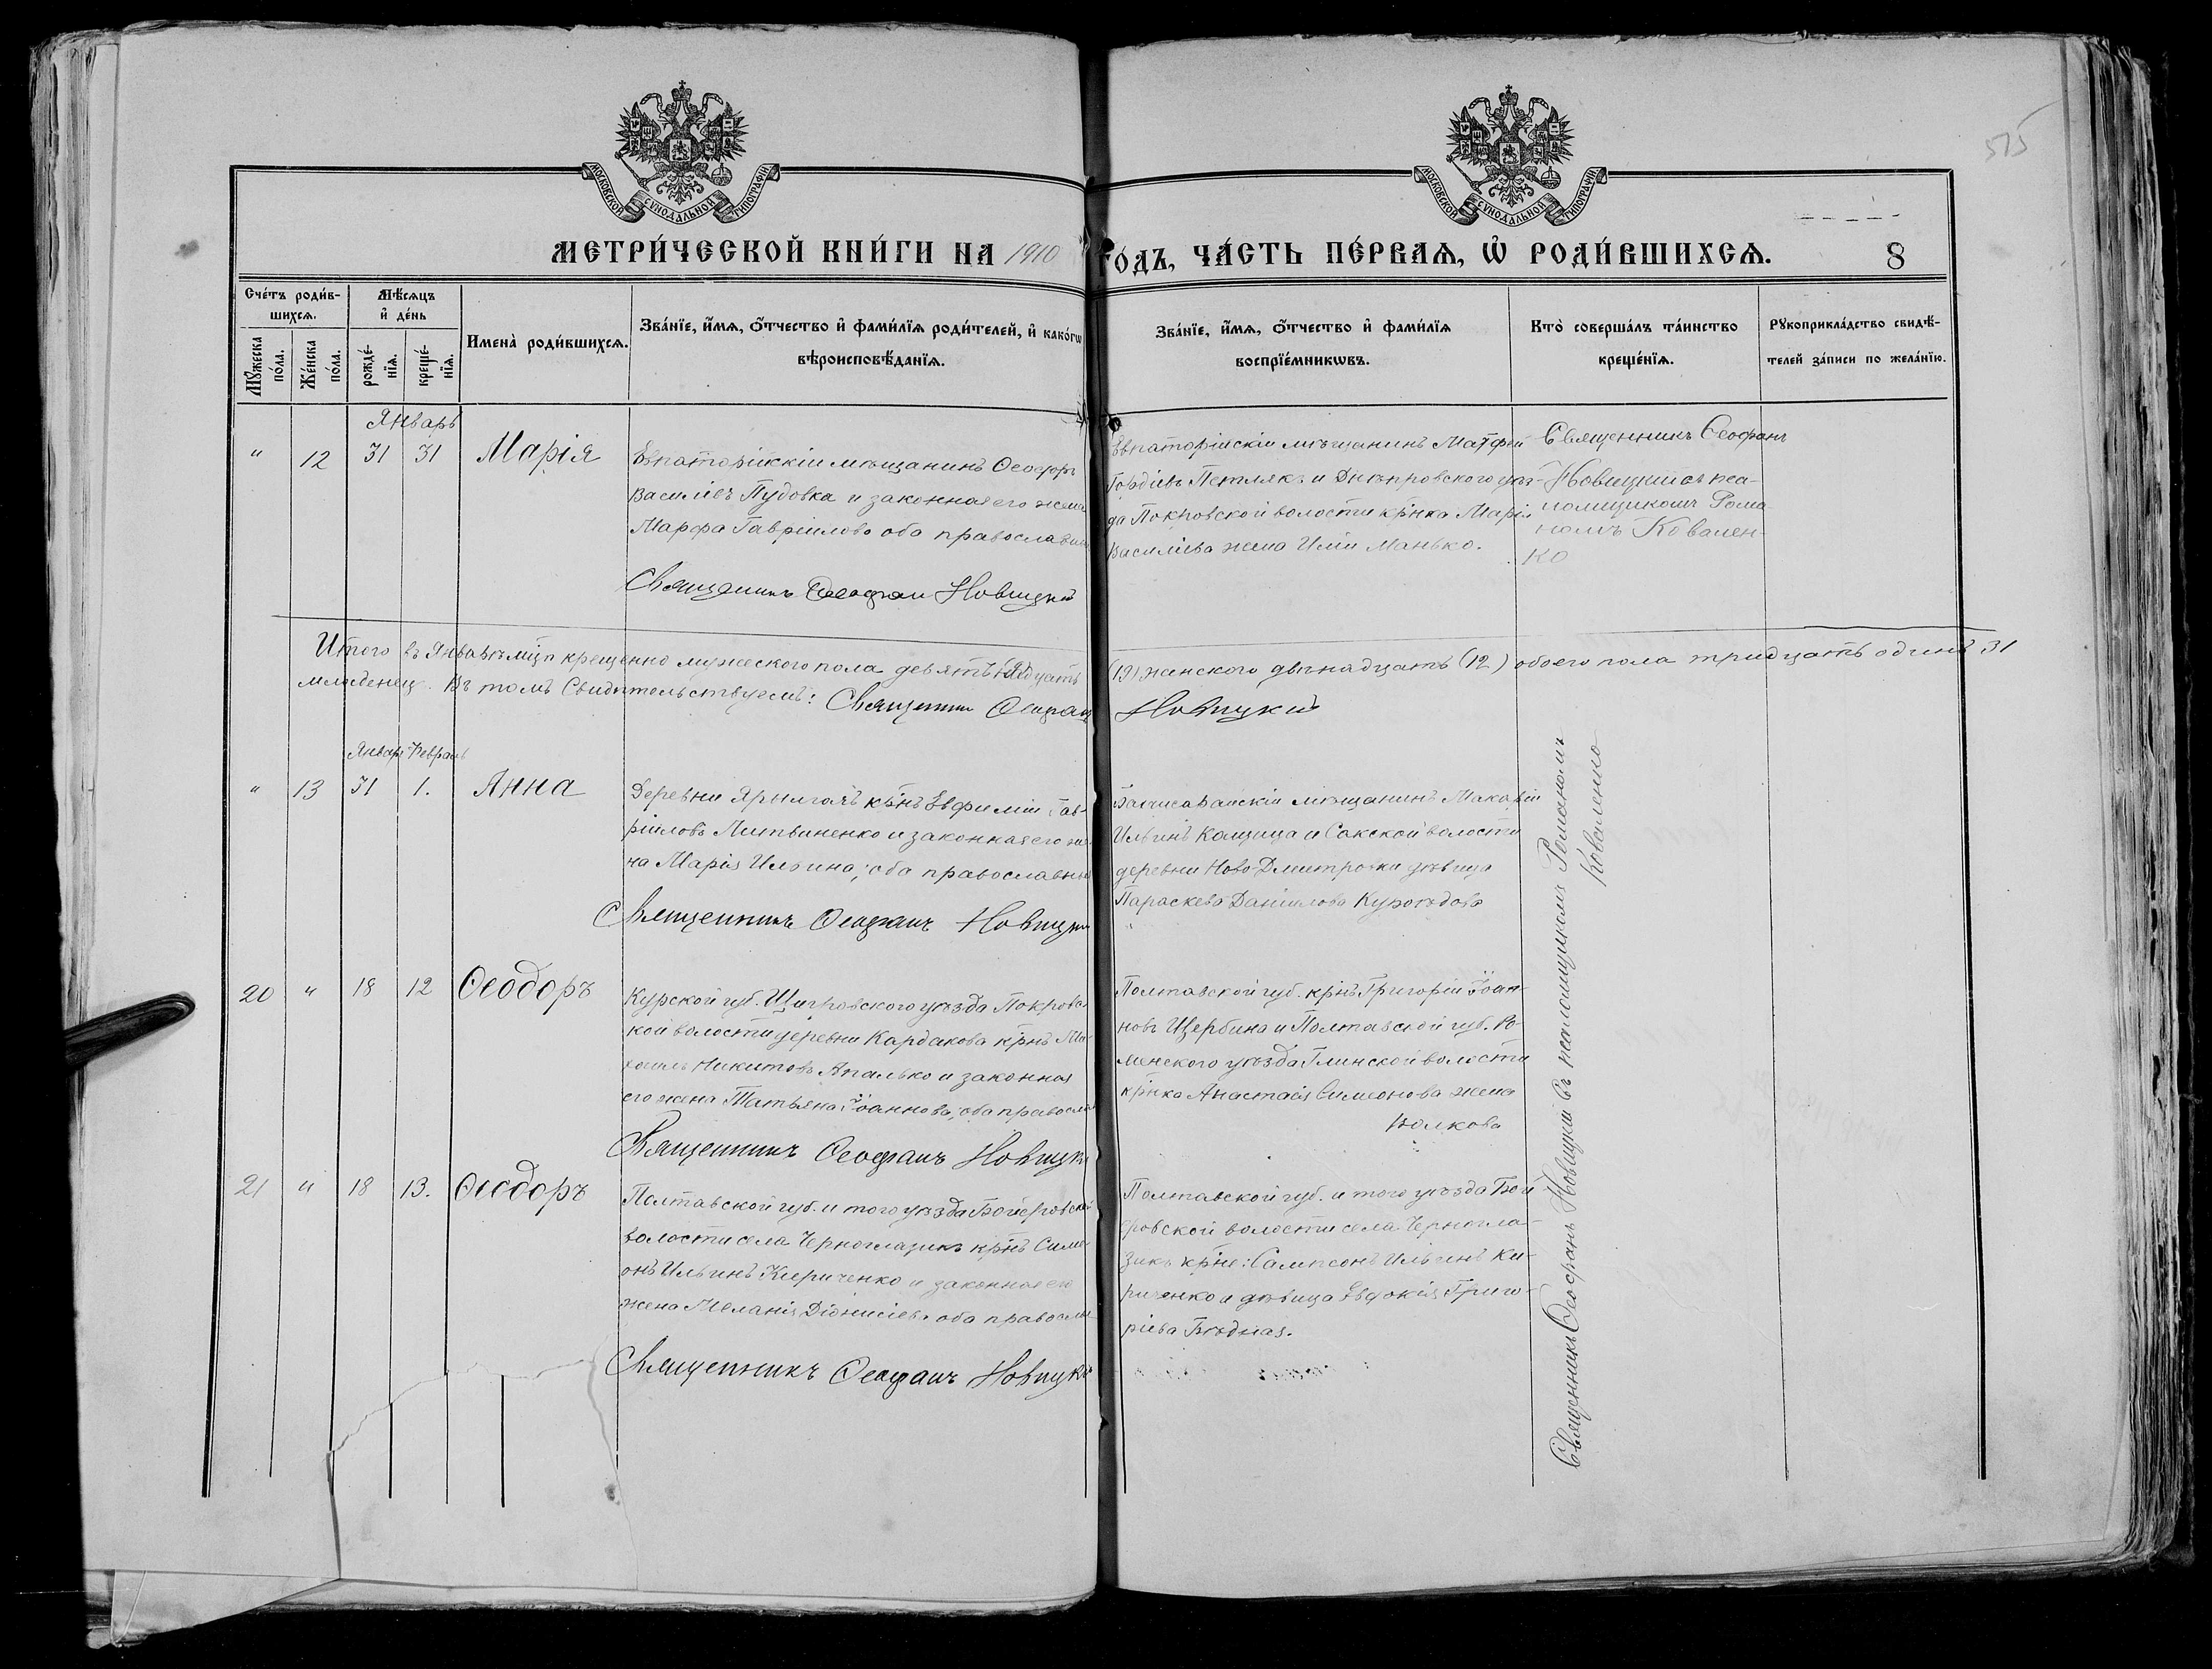 515
МОСКОВСКОЙ СУНОДАЛЬНОЙ ТИПОГРАФІИ
МОСКОВСКОЙ СУНОДАЛЬНОЙ ТИПОГРАФІИ
МЕТРИ́ЧЕСКОЙ КНИ́ГИ НА 1910 ГО́ДЪ, ЧА́СТЬ ПЕ́РВАѦ, Ѡ҆ РОДИ́ВШИХСѦ. 8
Сче́тъ роди́в-
шихсѧ.
Мѣ́сѧцъ
и҆ де́нь
Мꙋ́жеска по́ла.
Же́нска по́ла.
рожде́-
нїѧ.
креще́-
нїѧ.
Имена̀ роди́вшихсѧ.
Зва́нїе, и҆́мѧ, ѻ҆́тчество и҆ фами́лїѧ роди́телей, и҆ како́гѡ
вѣроисповѣ́данїѧ.
Зва́нїе, и҆́мѧ, ѻ҆́тчество и҆ фами́лїѧ
воспрїе́мникѡвъ.
Кто̀ соверша́лъ та́инство
креще́нїѧ.
Рꙋкоприкла́дство свидѣ́-
телей за́писи по жела́нїю.
Январь
" 12 31 31 Марія
Евпаторійскій мѣщанинъ Ѳеодоръ
Василіевъ Пудовка и законная его жена
Марѳа Гавріилова оба православны
Священникъ Ѳеофан Новицкій
Евпаторійскій мѣщанинъ Матѳей
Гордіевъ Петлякъ и Днѣпровского уѣз-
да Покровской волости кр̃нка Марія
Василіева жена Иліи Манько.
Священникъ Ѳеофанъ
Новицкій съ пса-
ломщикомъ Рома
номъ Ковален-
ко
Итого въ Январѣ мц̃ѣ крещенно мужеского пола девятьнадцать (19) женского двѣнадцать (12) обоего пола тридцать одинъ 31
младенец. Въ томъ Свидѣтельствуемъ: Священник Ѳеофан Новицкій
Январь Февраль
" 13 31 1. Анна
Деревни Ярылгачъ кр̃нъ Евфимій Гав-
ріиловъ Литвиненко и законная его же-
на Марія Ильина; оба православны
Священникъ Ѳеофанъ Новицкій
Бахчисарайскій мѣщанинъ Макарій
Ильинъ Камщица и Сакской волости
деревни Ново-Дмитровки дѣвица
Параскева Даніилова Куроѣдова
20 " 18 12 Ѳеодоръ
Курской губ. Щигровского уѣзда Покровс-
кой волости деревни Кардакова кр̃нъ Ми-
хаилъ Никитовъ Апалько и законная
его жена Татьяна Іоаннова; оба правосла
Священникъ Ѳеофанъ Новицкі
Полтавской губ. кр̃нъ Григорій Іоан-
новъ Щербина и Полтавской губ. Ро-
менского уѣзда Глинской волости
кр̃нка Анастасія Симеонова жена
Волкова
21 " 18 13. Ѳеодоръ
Полтавской губ. и того уѣзда
волости села Черноглазикъ кр̃нъ Симе-
онъ Ильинъ Кириченко и законная его
жена Меланія Діонисіева оба правосла
Священникъ Ѳеофанъ Новицкі
Полтавской губ. и того уѣзда
волости села Черногла-
зикъ кр̃не: Сампсонъ Ильинъ Ки-
риченко и дѣвица Евдокія Григо-
ріева Бѣдная.
Священникъ Ѳеофанъ Новицкій съ псаломщикомъ Романомъ
Коваленко